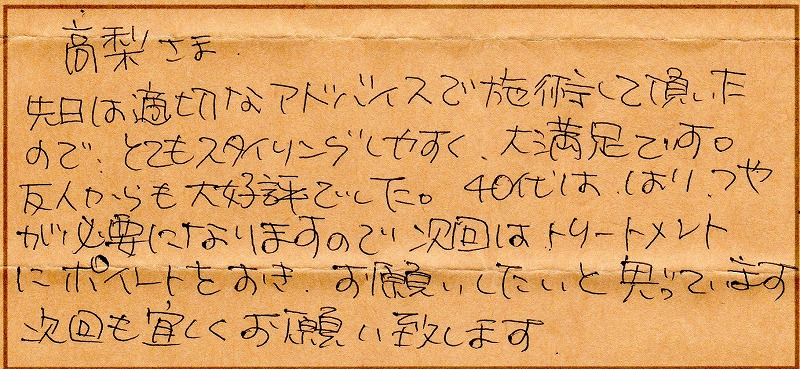 高梨さま
先日は適切なアドバイスで施術して頂いた
ので、とてもスタイリングしやすく、大満足です。
友人からも大好評でした。40代は、はり、つや
が必要になりますので次回はトリートメント
にポイントをおき、お願いしたいと思っています
次回も宜しくお願い致します